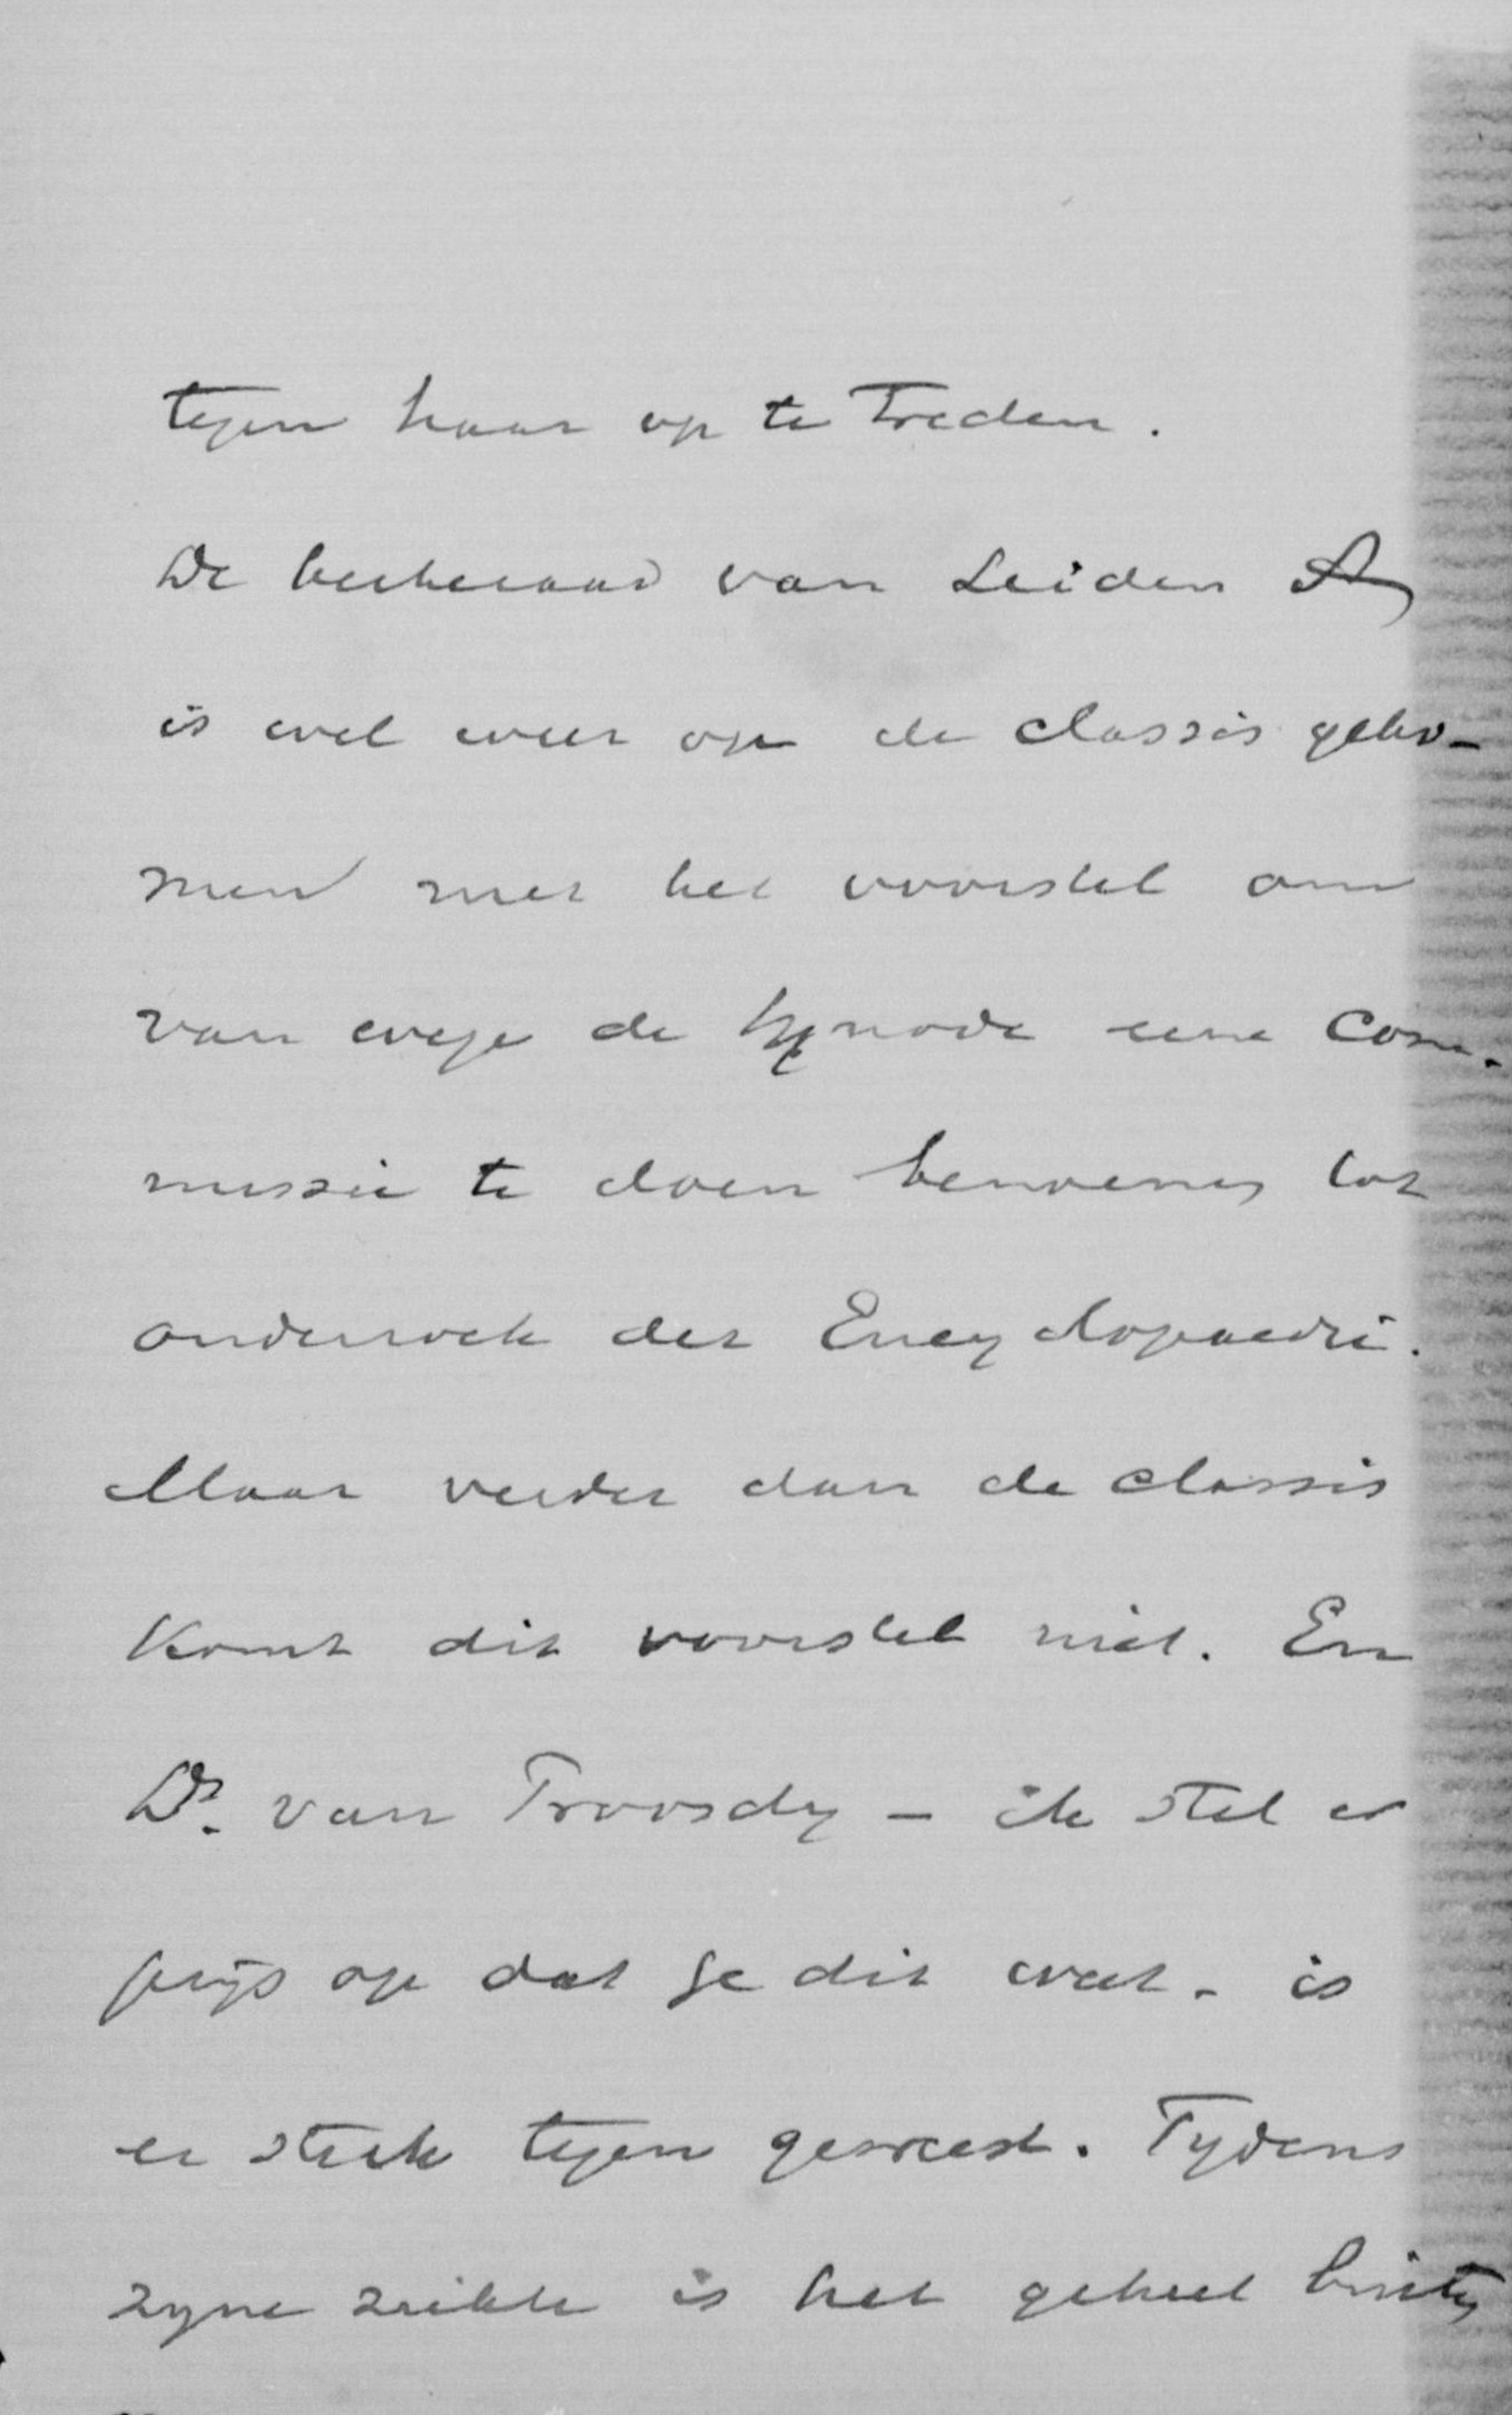 tegen haar op te treden.
De kerkeraad van Leiden A
is wel weer op de classis geko-
men met het voorstel om
van wege de Synode eene Com-
missie te doen benoemen tot
onderzoek der Encyclopaedie.
Maar verder dan de classis
komt dit voorstel niet. En
Ds. van Proosdy – ik stel er
prijs op dat je dit weet – is
er sterk tegen geweest. Tydens
zyne ziekte is het geheel buiten